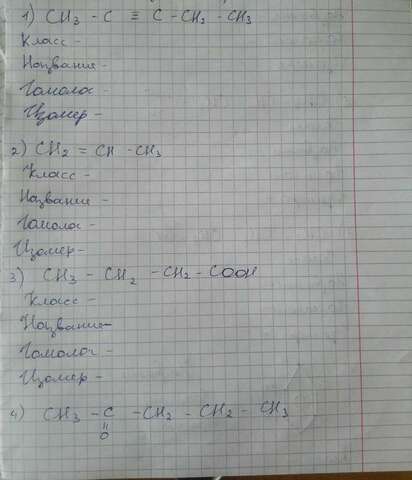 1) CH₃ - C ≡ C - CH₂ - CH₃
Класс -
Название -
Гомолог -
Изомер -
2) CH₂ = CH - CH₃
Класс -
Название -
Гомолог -
Изомер -
3) CH₃ - CH₂ - CH₂ - COOH
Класс -
Название -
Гомолог -
Изомер -
4) CH₃ - C - CH₂ - CH₂ - CH₃
=
O